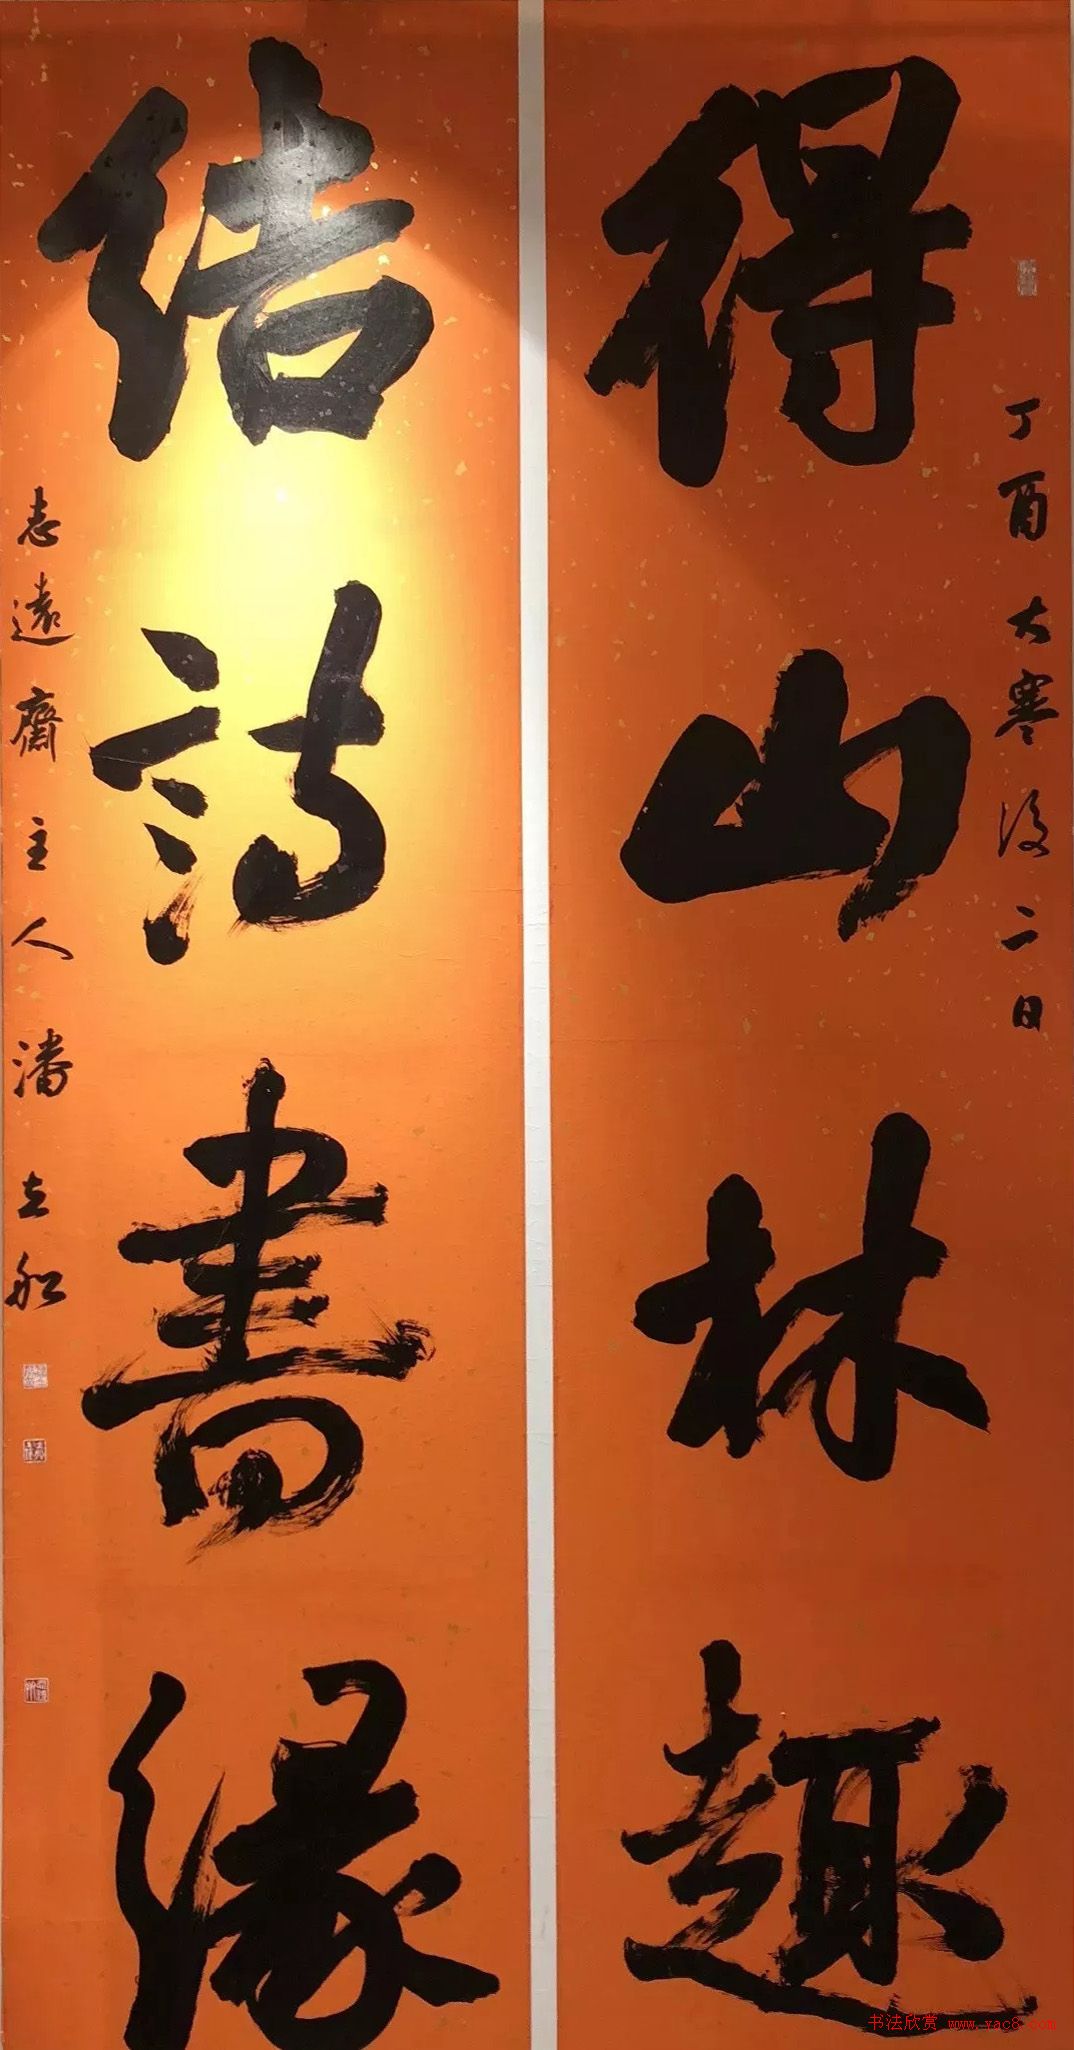 丁酉大寒後二日
得山林趣
結詩書緣
志遠齋主人潘立船
书法欣赏 www.yac8.com